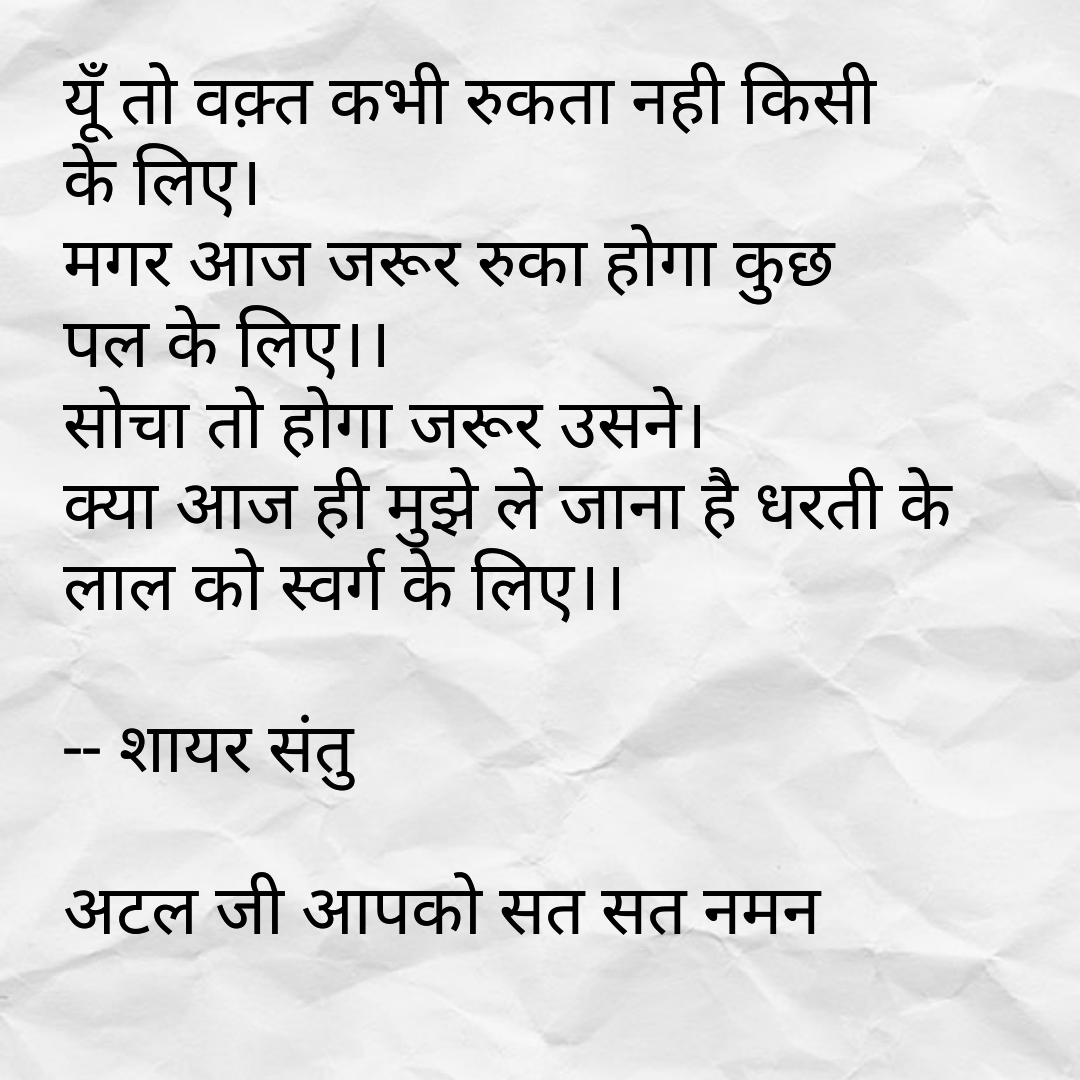 यूँ तो वक़्त कभी रुकता नही किसी
के लिए।
मगर आज जरूर रुका होगा कुछ
पल के लिए।।
सोचा तो होगा जरूर उसने।
क्या आज ही मुझे ले जाना है धरती के
लाल को स्वर्ग के लिए।।
-- शायर संतु
अटल जी आपको सत सत नमन